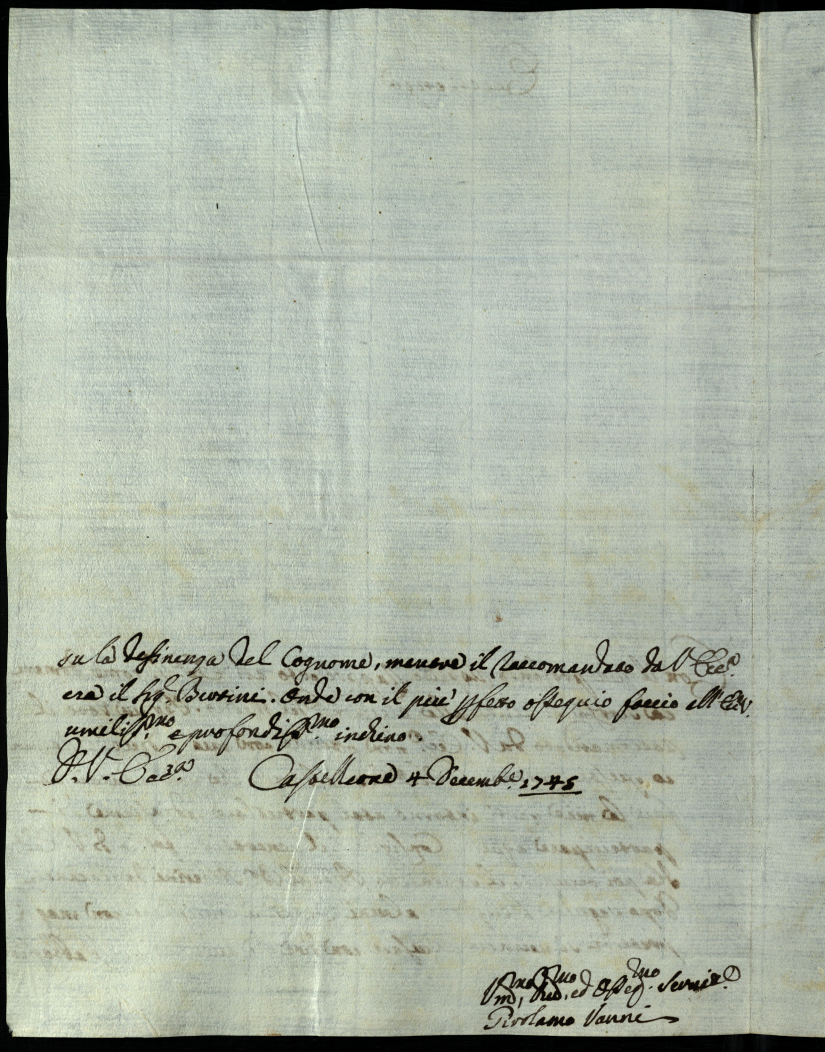 su la desinenza del Cognome, mentre il raccomandato da V. Ecc.ª
era il Sig.r Bursini. Onde con il più pfetto ossequio faccio all' E.V.
umiliss.mo e profondiss.mo inchino.
D. V. Ecc.za Castelleone 4 Decemb.e 1745
Um.mo, ed Osseq.mo Servit.e
Girolamo Vanni